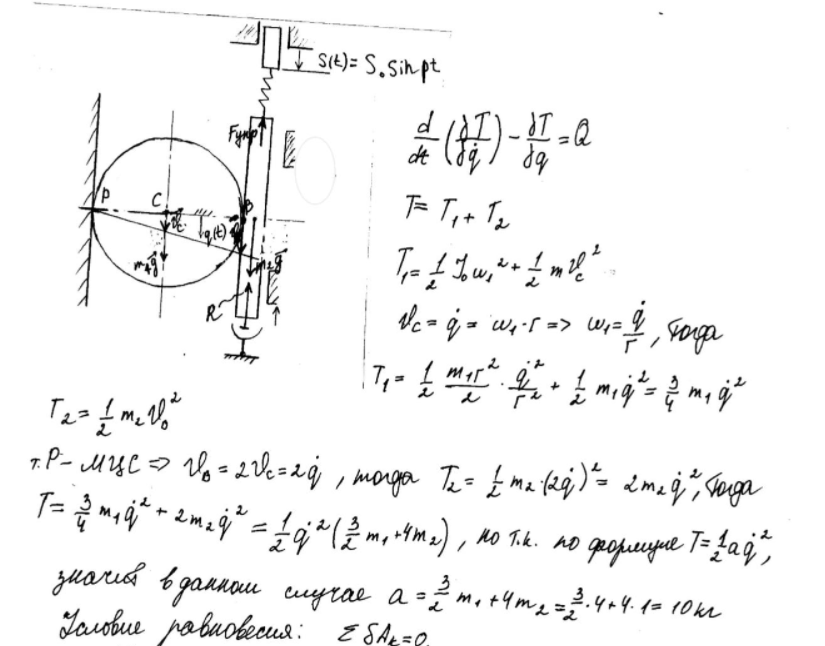 S(t) = S₀ sin pt
Fупр
P
C
B
q(t)
m₁g⃗
m₂g⃗
R
d/dt (∂T/∂q̇) − ∂T/∂q = Q
T = T₁ + T₂
T₁ = 1/2 J₀ω₁² + 1/2 m v_c²
v_c = q̇ = ω₁·r => ω₁ = q̇/r, тогда
T₁ = 1/2 m₁r²/2 · q̇²/r² + 1/2 m₁q̇² = 3/4 m₁q̇²
T₂ = 1/2 m₂v_B²
т. P − МЦС => v_B = 2v_c = 2q̇, тогда T₂ = 1/2 m₂·(2q̇)² = 2m₂q̇², тогда
T = 3/4 m₁q̇² + 2m₂q̇² = 1/2 q̇² (3/2 m₁ + 4m₂), но т.к. по формуле T = 1/2 aq̇²,
значит в данном случае a = 3/2 m₁ + 4m₂ = 3/2·4 + 4·1 = 10 кг
Условие равновесия: ΣδA_k = 0.